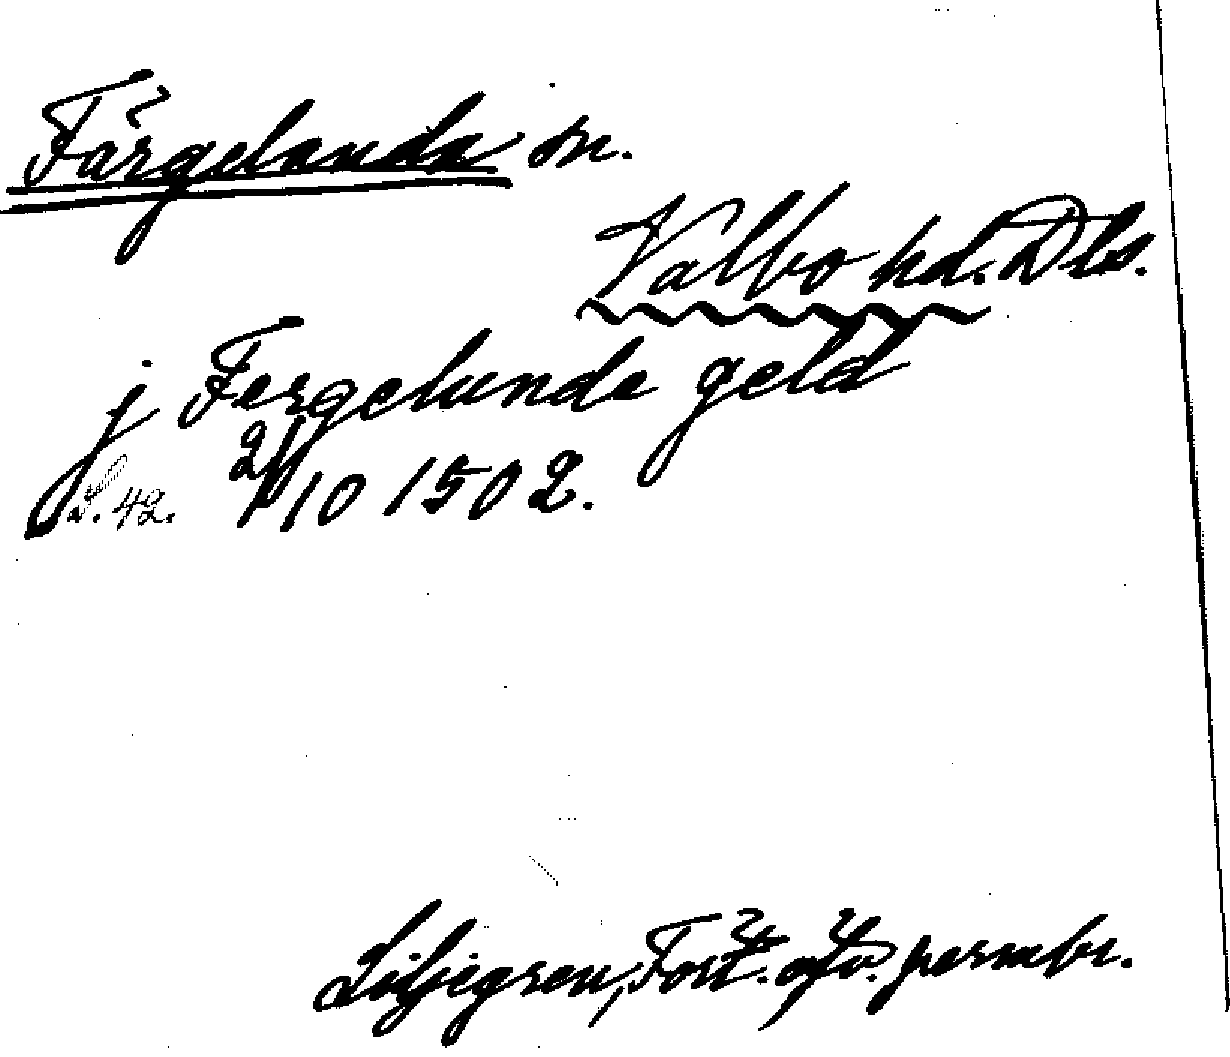 Färgelanda sn.
Valbo hd. Dls.
j Fergelunde geld
S. 42. 21/10 1502.
Liljegren, Fört. öfv. permbr.